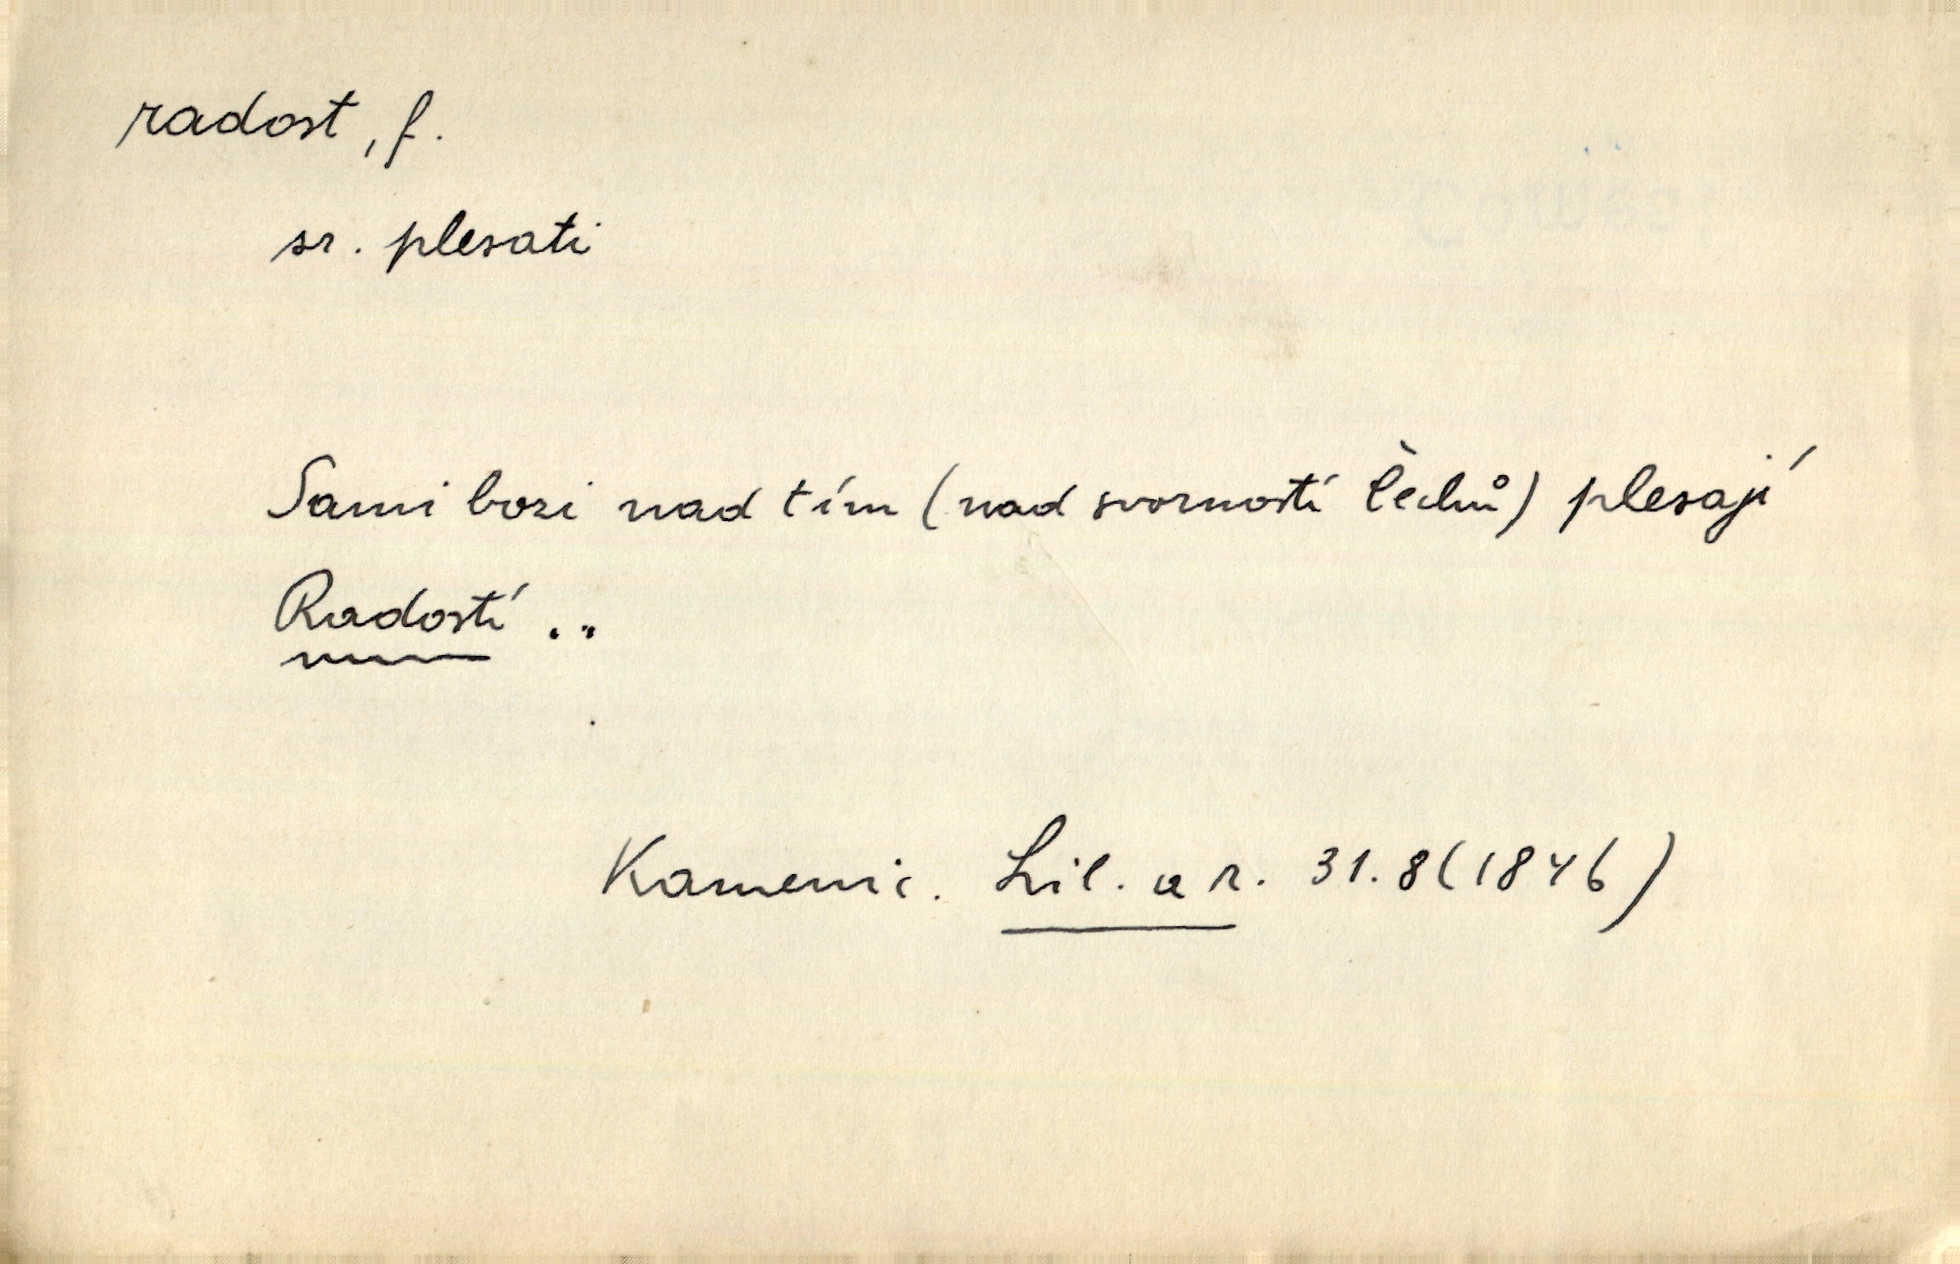 radost, f.
sr. plesati
Sami bozi nad tím (nad svorností Čechů) plesají
Radostí ...
Kamenic. Lil. a r. 31.8 (1846)